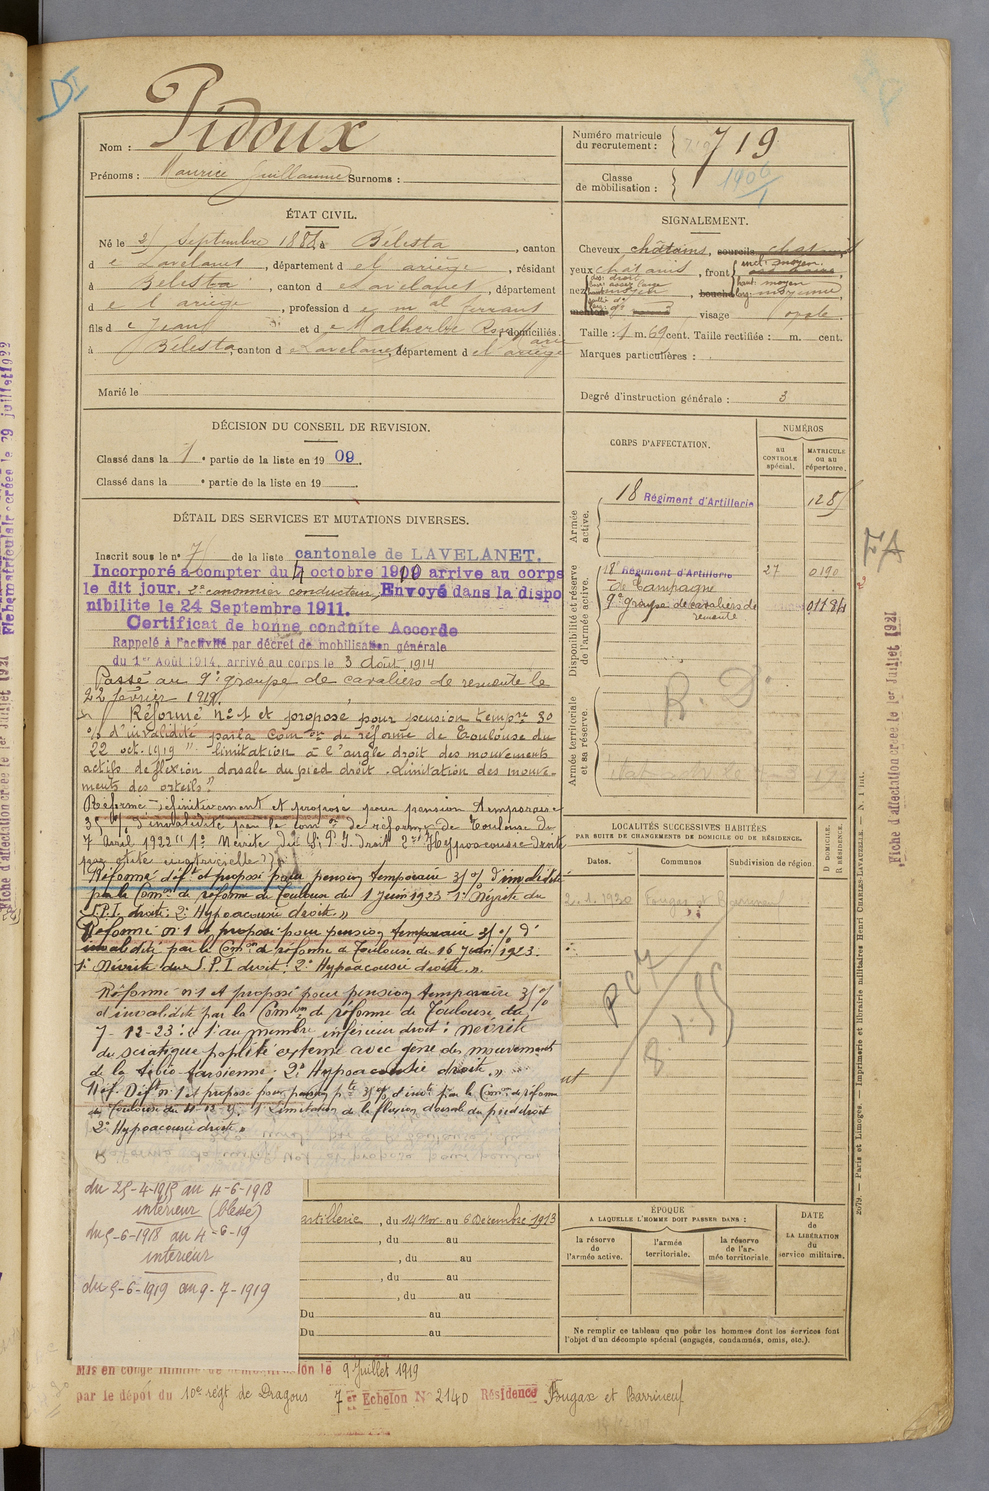 DI
Nom : Pidoux
Prénoms : Maurice Guillaume Surnoms :
Numéro matricule
du recrutement : 719
Classe
de mobilisation : 1906
ÉTAT CIVIL.
Né le Septembre 188 à Bélesta, canton
de Lavelanet, département de l ariège, résidant
à Bélesta, canton de Lavelanet, département
de l ariège, profession de mal ferrant
fils de Jean et de Malherbe domiciliés
à Bélesta, canton de Lavelanet, département de l'ariège
Marié le
SIGNALEMENT.
Cheveux châtains, sourcils
yeux chatains, front incl: moyen
haut: moyen
nez dos: droit
bouche larg: moyenne
menton visage ovale.
Taille : 1 m. 69 cent. Taille rectifiée : m. cent.
Marques particulières :
Degré d'instruction générale : 3
DÉCISION DU CONSEIL DE REVISION.
Classé dans la 1e partie de la liste en 1909.
Classé dans la e partie de la liste en 19
DÉTAIL DES SERVICES ET MUTATIONS DIVERSES.
Inscrit sous le n° 7 de la liste cantonale de LAVELANET.
Incorporé à compter du octobre 1909 arrive au corps
le dit jour, 2e canonnier conducteur, Envoyé dans la dispo
nibilite le 24 Septembre 1911.
Certificat de bonne conduite Accorde
Rappelé à l'activité par décret de mobilisation générale
du 1er Août 1914, arrivé au corps le 3 Août 1914
Passé au 9e groupe de cavaliers de remonte le
22 février 1919.
Réformé n°1 et proposé pour pension tempre 30
% d'invalidité par la Comon de réforme de Toulouse du
22 oct. 1919 "limitation à l'angle droit des mouvements
actifs de flexion dorsale du pied droit. Limitation des mouve-
ments des orteils"
Réformé définitivement et proposé pour pension temporaire
35 % d'invalidité par la comon de réforme de Toulouse du
7 Avril 1922 "1° Névrite du S.P.I. droit 2° Hypoacousie droite
par otite
Réformé déft et proposé pour pension temporaire 35% d'invalidité
par la Comon de réforme de Toulouse du 1 Juin 1923 1° Névrite du
S.P.I. droit: 2° Hypoacousie droite."
Réformé n°1 et proposé pour pension temporaire 35 % d'
invalidité par la Comon de réforme de Toulouse du 16 Juin 1923.
1° Névrite du S.P.I droit: 2° Hypoacousie droite."
Réformé n°1 et proposé pour pension temporaire 35 %
d'invalidité par la Common de réforme de Toulouse du
7-12-23: "1° au membre inférieur droit: névrite
du sciatique poplité externe avec gêne des mouvements
de la tibio-tarsienne. 2° Hypoacousie droite."
Réf. Déf n°1 et proposé pour pension pte 35% d'invté par la Comon de réforme
de Toulouse du 1° Limitation de la flexion dorsale du pied droit
2° Hypoacousie droite"
du 25-4-1915 au 4-6-1918
intérieur (blessé)
du 5-6-1918 au 4-6-19
intérieur
du 5-6-1919 au 9-7-1919
artillerie, du 14 Nov. au 6 Décembre 1913
, du au
, du au
, du au
, du au
Du au
Du au
Mis en congé illimité de démobilisation le 9 Juillet 1919
par le dépôt du 10e régt de Dragons 7e Echelon N° 2140 Résidence Fougax et Barrineuf
CORPS D'AFFECTATION.
NUMÉROS
au
CONTROLE
spécial.
MATRICULE
ou au
répertoire.
Armée
active.
18 Régiment d'Artillerie 1285
Disponibilité et réserve
de l'armée active.
18e Régiment d'Artillerie 27 0190
de Campagne
9e groupe de cavaliers de 01184
remonte
Armée territoriale
et sa réserve.
R. D.
LOCALITÉS SUCCESSIVES HABITÉES
PAR SUITE DE CHANGEMENTS DE DOMICILE OU DE RÉSIDENCE.
Dates. Communes Subdivision de région.
D DOMICILE.
R RÉSIDENCE.
1.1930 Fougax et Barrineuf
8.1.55
ÉPOQUE
A LAQUELLE L'HOMME DOIT PASSER DANS :
la réserve
de
l'armée active.
l'armée
territoriale.
la réserve
de l'ar-
mée territoriale.
DATE
de
LA LIBÉRATION
du
service militaire.
Ne remplir ce tableau que pour les hommes dont les services font
l'objet d'un décompte spécial (engagés, condamnés, omis, etc.).
2079. — Paris et Limoges. — Imprimerie et librairie militaires Henri CHARLES-LAVAUZELLE.
FA
Fiche d'affectation créée le 1er Juillet 1921
Fiche matriculaire créée le 29 juillet 1922
Fiche d'affectation créée le 1er Juillet 1921